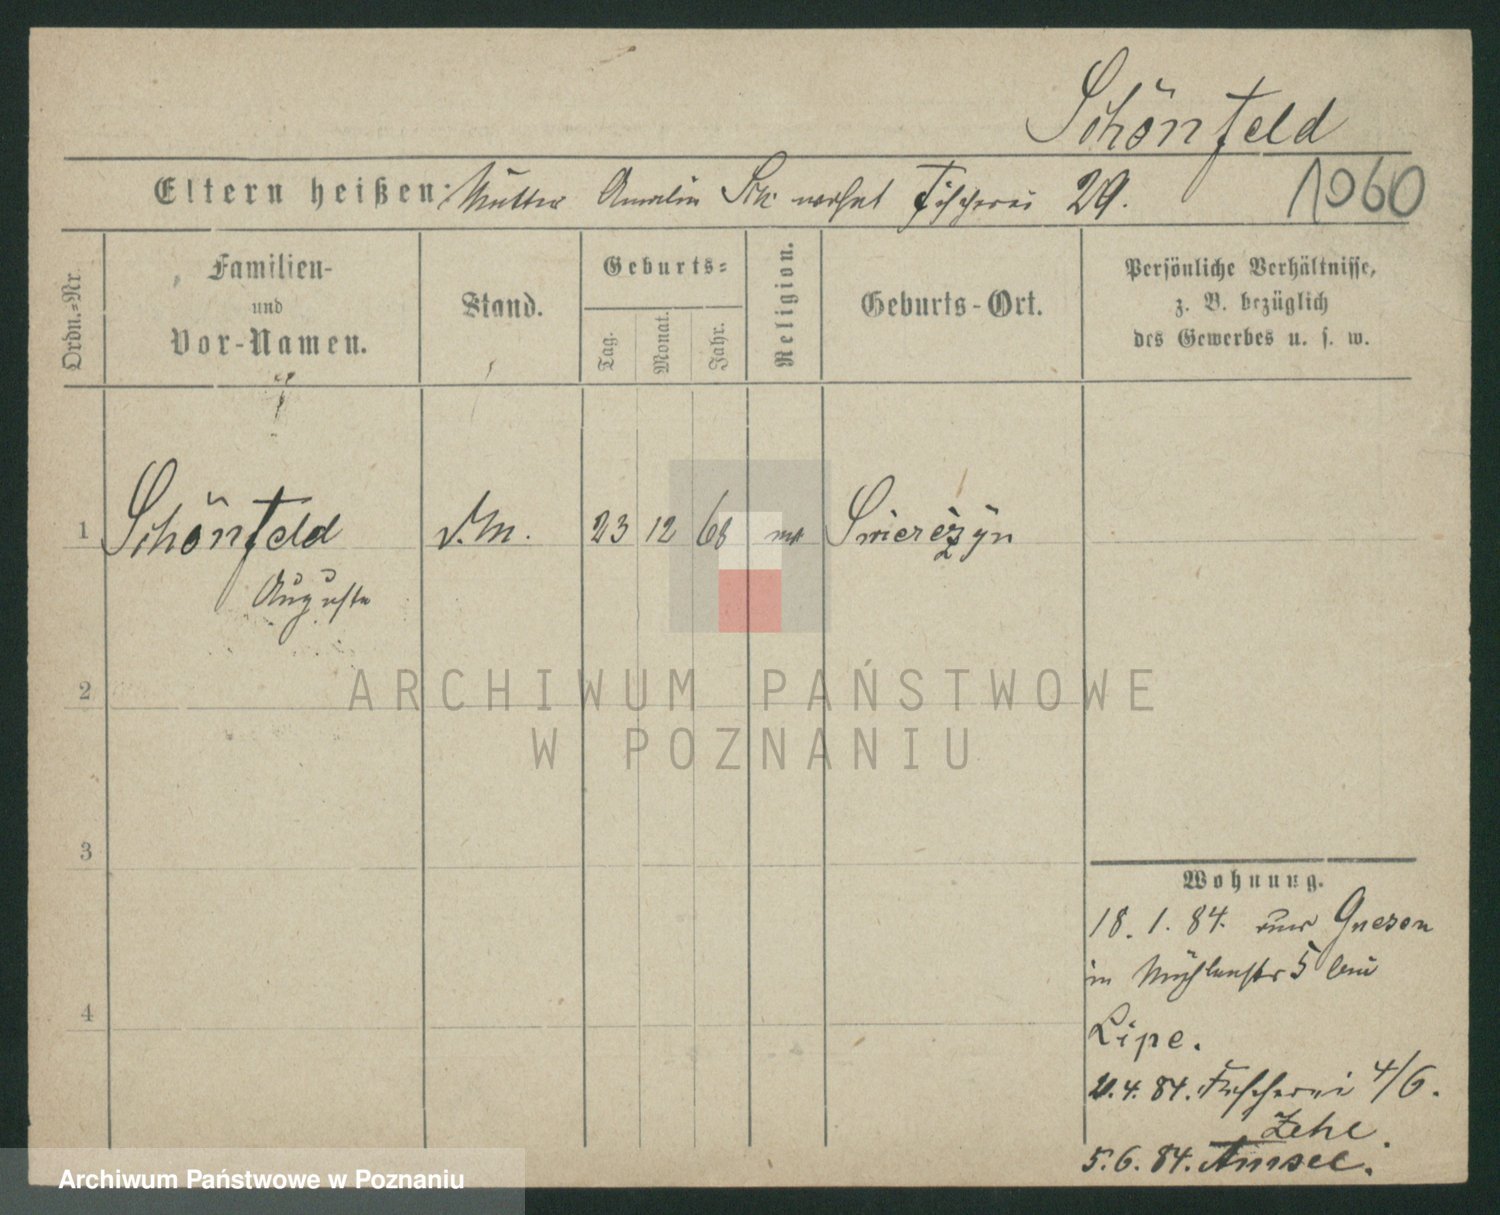 Schönfeld
Eltern heißen: Mutter Amalie Sch. wohnt Fischerei 29. 1060
Ordn.-Nr.
Familien-
und
Vor-Namen.
Stand.
Geburts-
Tag.
Monat.
Jahr.
Religion.
Geburts-Ort.
Persönliche Verhältnisse,
z. B. bezüglich
des Gewerbes u. s. w.
1 Schönfeld D.M. 23 12 68 Swierczyn
Auguste
2
ARCHIWUM PAŃSTWOWE
W POZNANIU
3
4
Wohnung.
18. 1. 84. aus Gnesen
in Mühlenstr 5 bei
Lipe.
4. 84. Fischerei 4/6.
Zehe.
5. 6. 84.
Archiwum Państwowe w Poznaniu